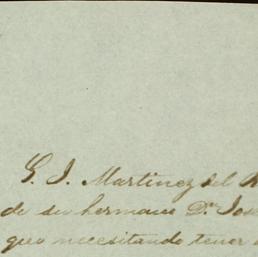 G. J. Martinez del
de su hermano Dn. Jose
que necesitando tener